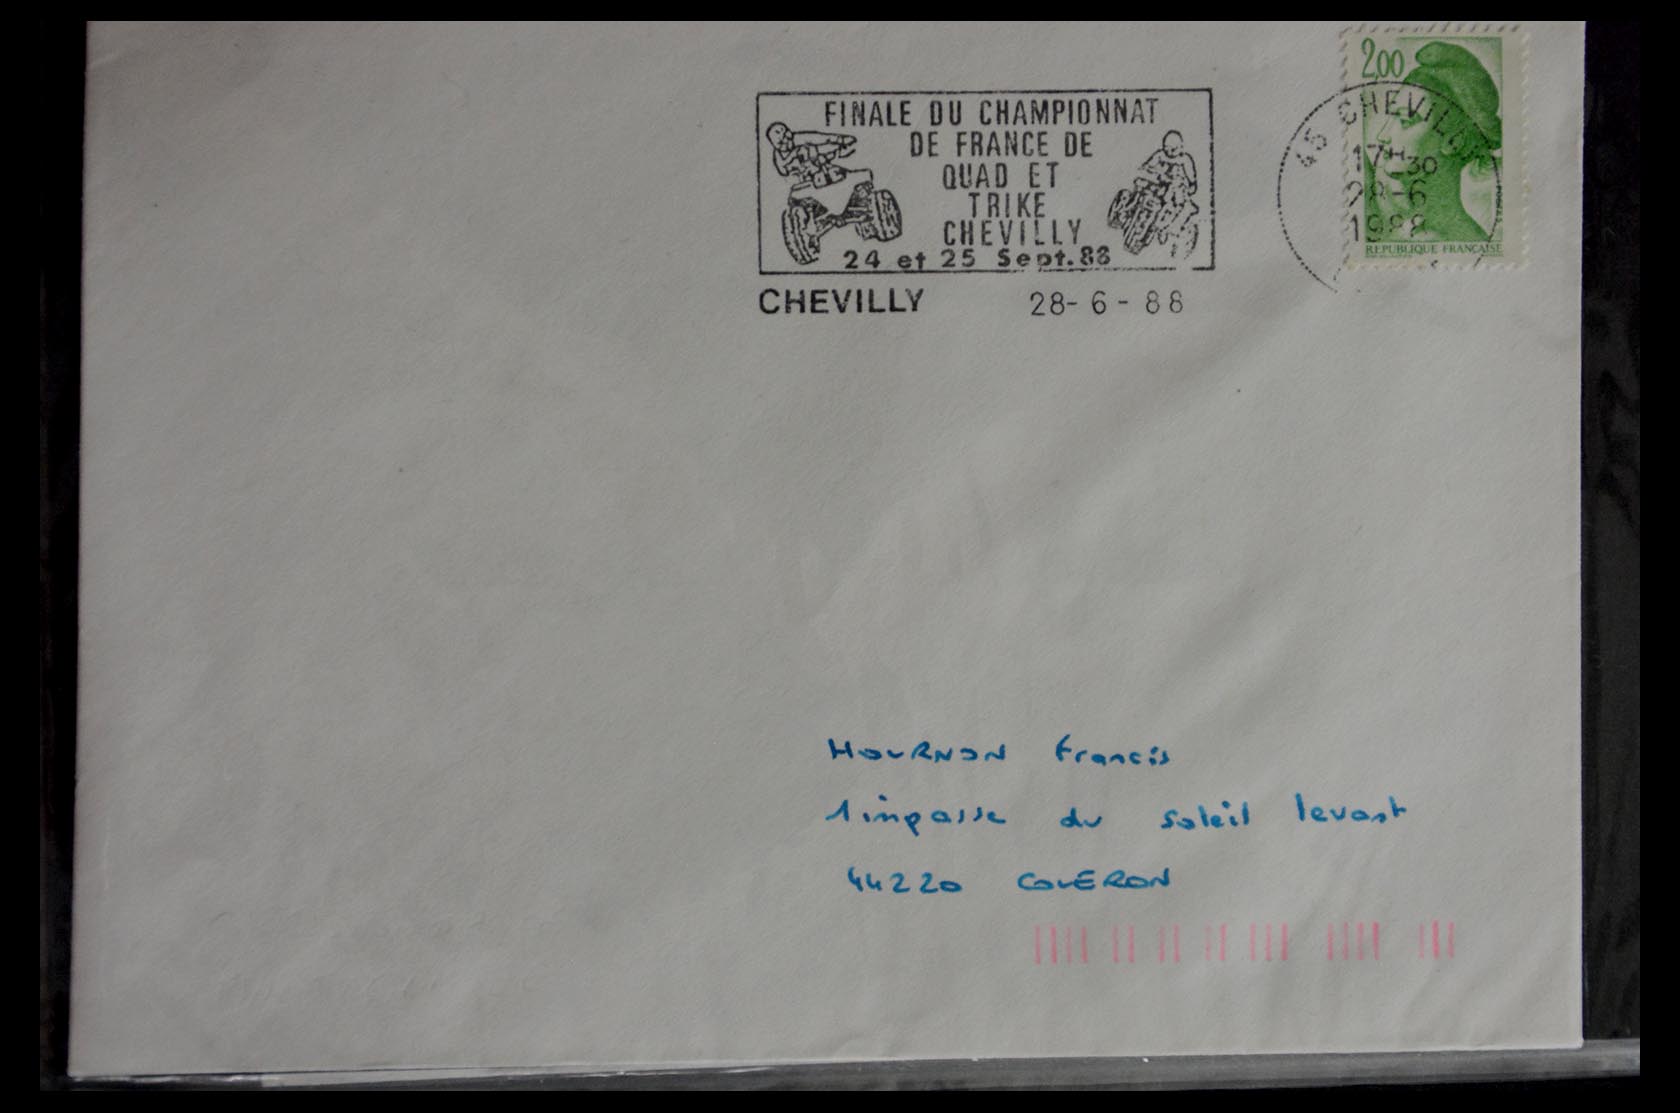 FINALE DU CHAMPIONNAT
DE FRANCE DE
QUAD ET
TRIKE
CHEVILLY
24 et 25 Sept. 88
CHEVILLY 28-6-88
2,00
45 CHEVILLY
17H30
28-6
1988
REPUBLIQUE FRANÇAISE
HOURNON Francis
1 impasse du soleil levant
44220 COUERON